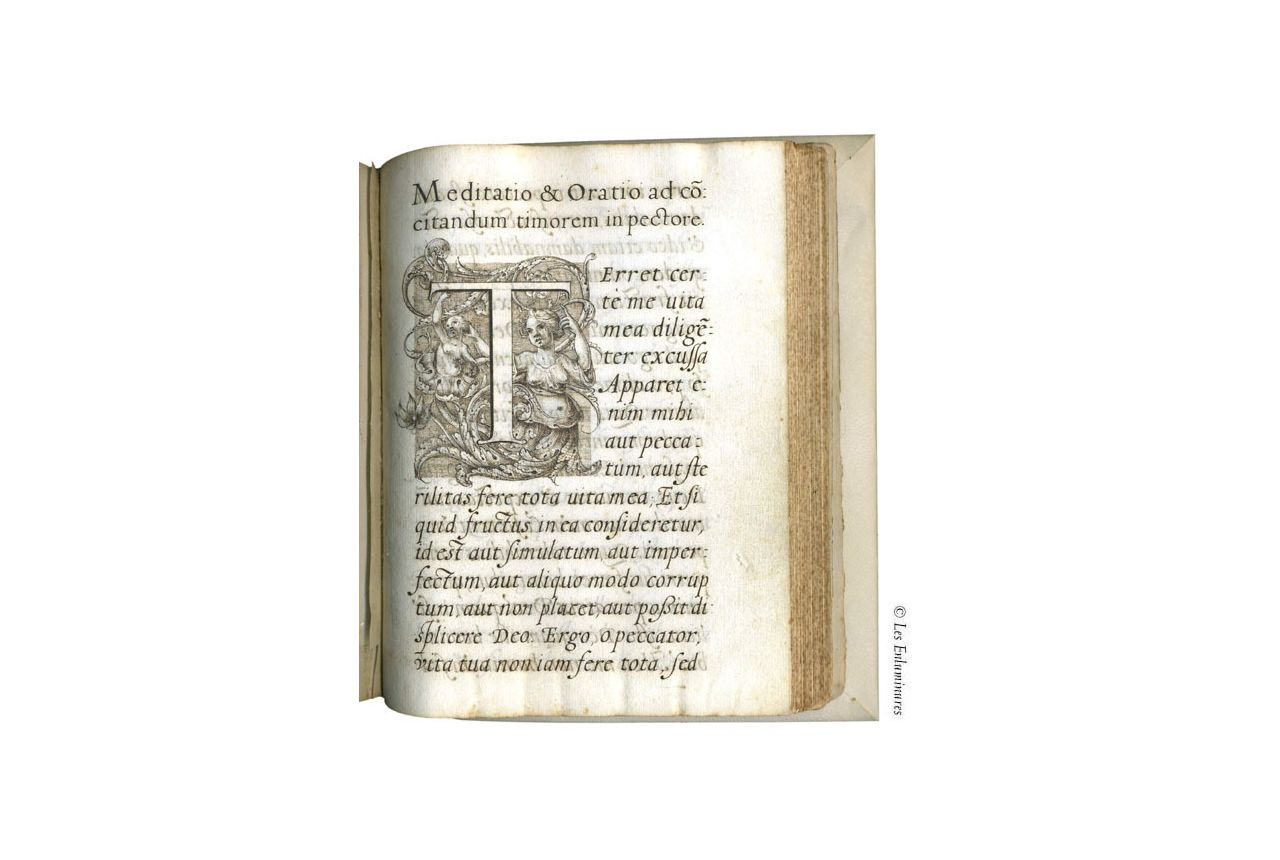 Meditatio & Oratio ad cõ:
citandum timorem in pectore.
TErret cer
te me uita
mea diligẽ:
ter excussa
Apparet e:
nim mihi
aut pecca:
tum, aut ste
rilitas fere tota uita mea; Et si
quid fructus in ea consideretur,
id est aut simulatum aut imper:
fectum, aut aliquo modo corrup
tum, aut non placet, aut possit di
splicere Deo. Ergo, o peccator,
vita tua non iam fere tota, sed
© Les Enluminures